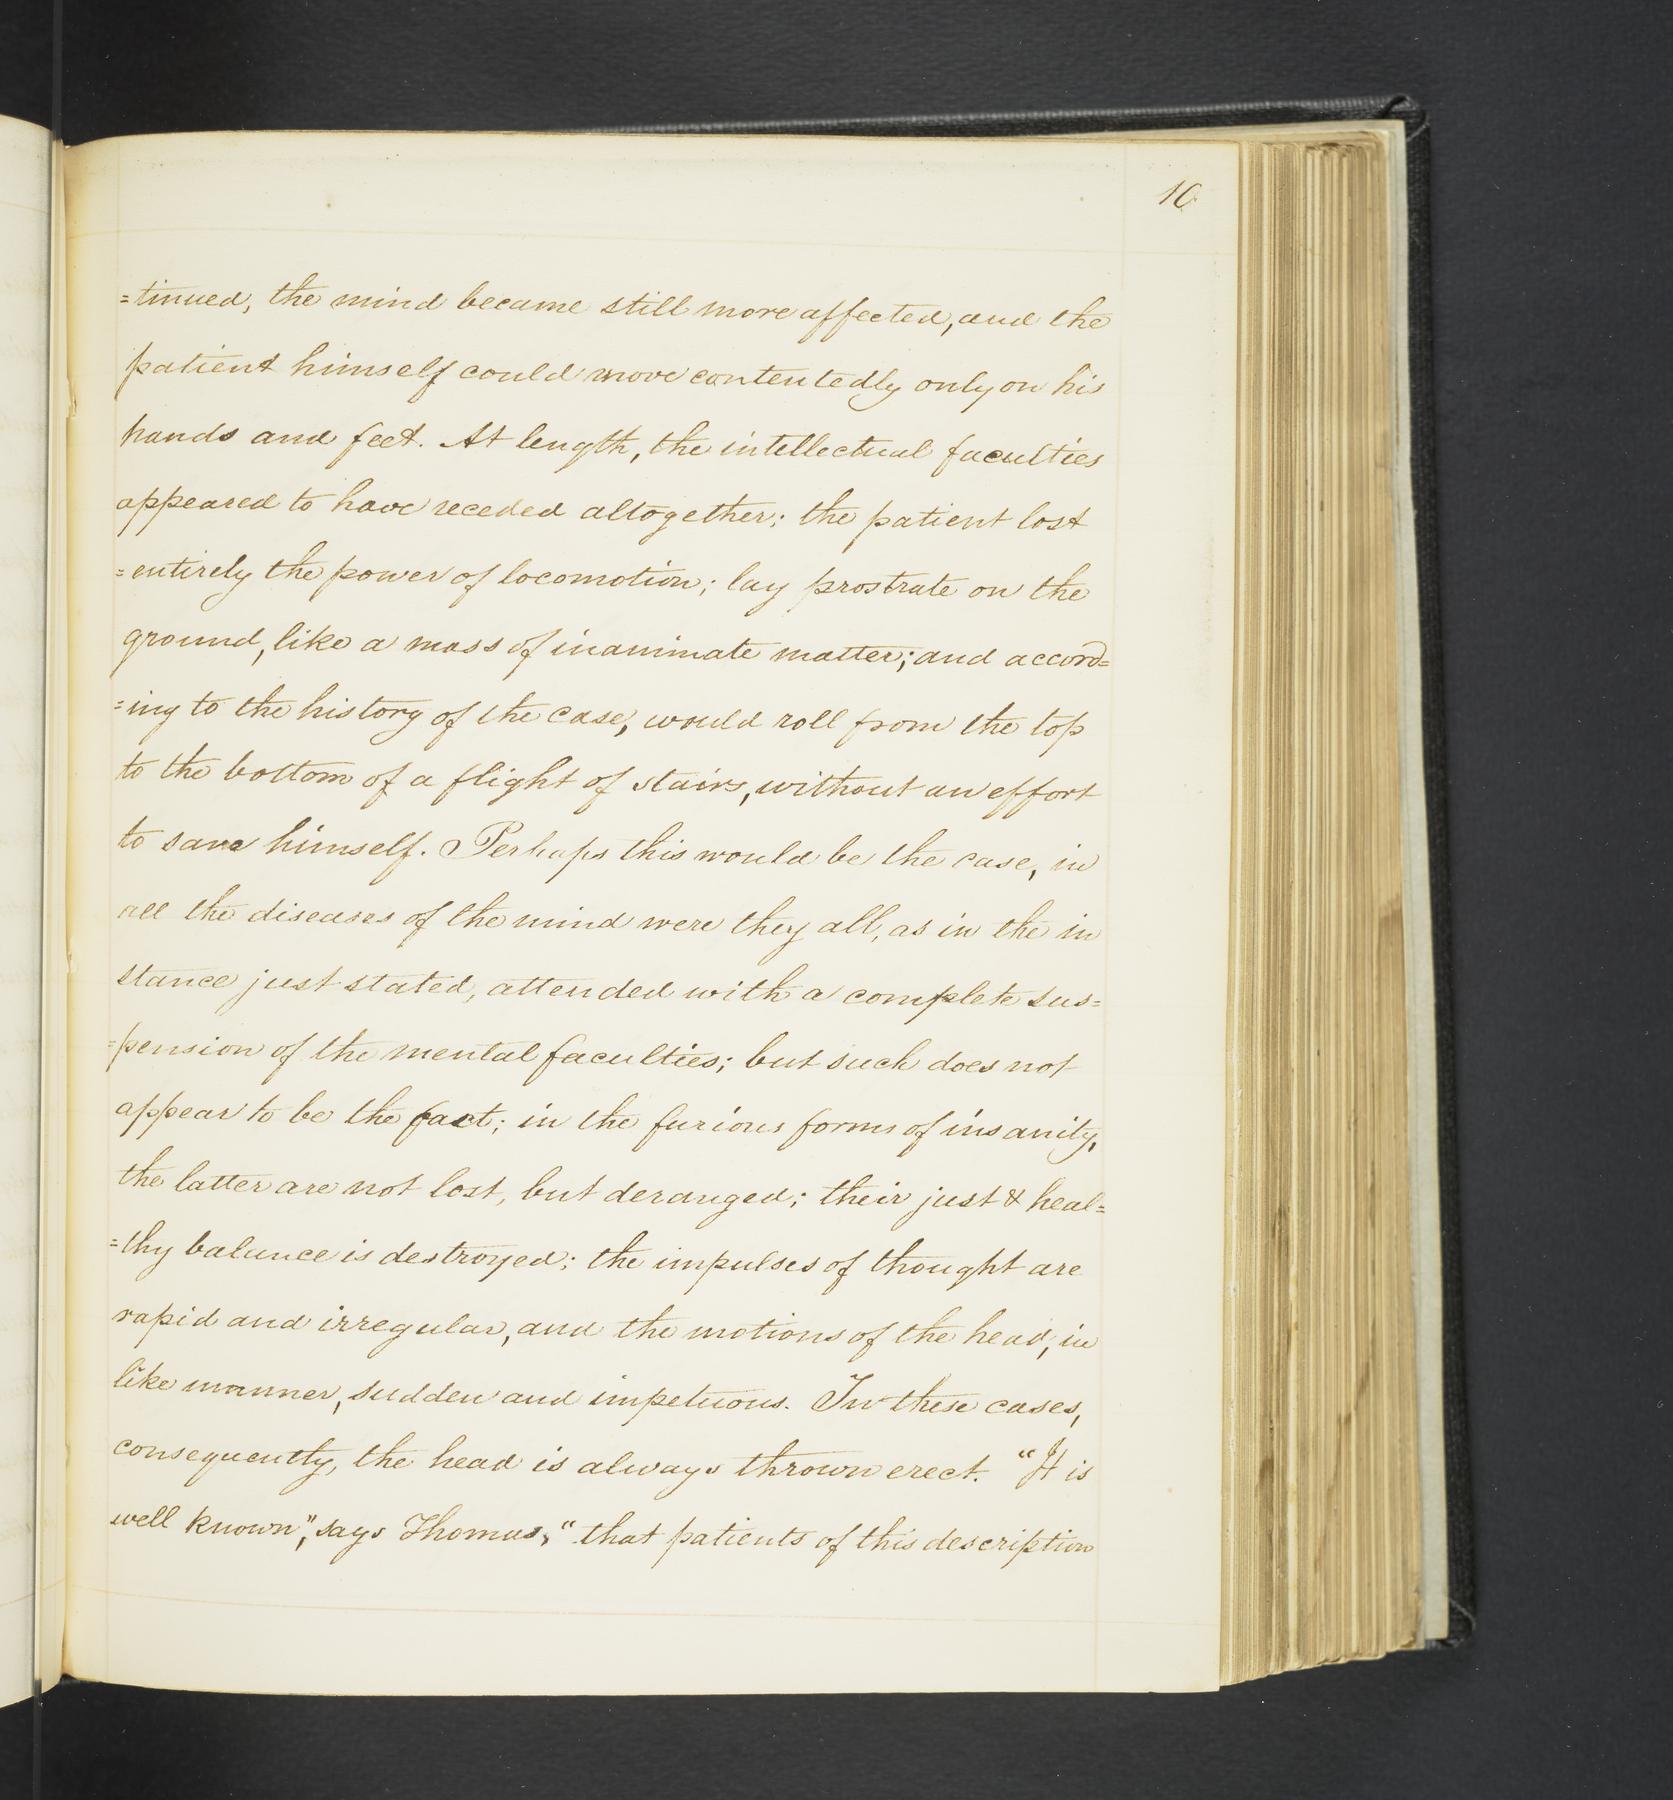 10
=tinued, the mind became still more affected, and the
patient himself could move contentedly only on his
hands and feet. At length, the intellectual faculties
appeared to have receded altogether; the patient lost
=entirely the power of locomotion; lay prostrate on the
ground, like a mass of inanimate matter; and accord=
=ing to the history of the case, would roll from the top
to the bottom of a flight of stairs, without an effort
to save himself. Perhaps this would be the case, in
all the diseases of the mind were they all, as in the in
stance just stated, attended with a complete sus=
=pension of the mental faculties; but such does not
appear to be the fact; in the furious forms of insanity,
the latter are not lost, but deranged; their just & heal=
=thy balance is destroyed; the impulses of thought are
rapid and irregular, and the motions of the head, in
like manner, sudden and impetuous. In these cases,
consequently, the head is always thrown erect. "It is
well known", says Thomas, "that patients of this description